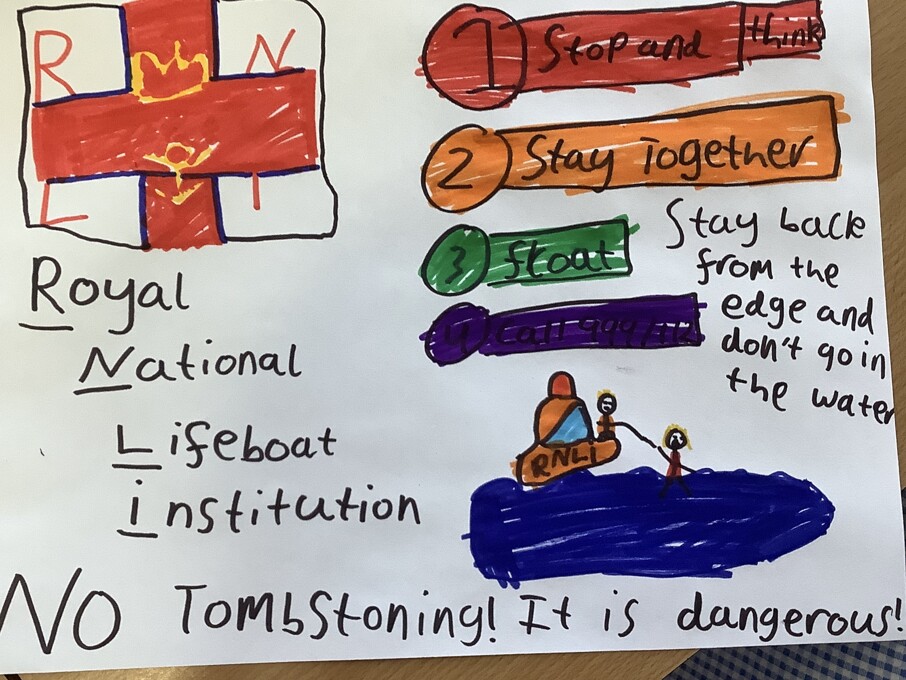 R N
L I
Royal
National
Lifeboat
institution
1 Stop and think
2 Stay Together
3 float
4 Call 999/112
Stay back
from the
edge and
don't go in
the water
RNLI
NO Tombstoning! It is dangerous!